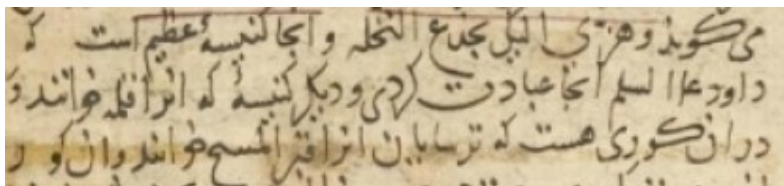 می‌کوید وهزی الیک بجذع النخله و آنجا کنیسهٔ عظیم است که
داود علیه السلم آنجا عبادت کردی و دیکر کنیسهٔ که آنرا قلمه خوانند و
در آن کوری هست که ترسایان آنرا قبر المسیح خوانند و آن کور